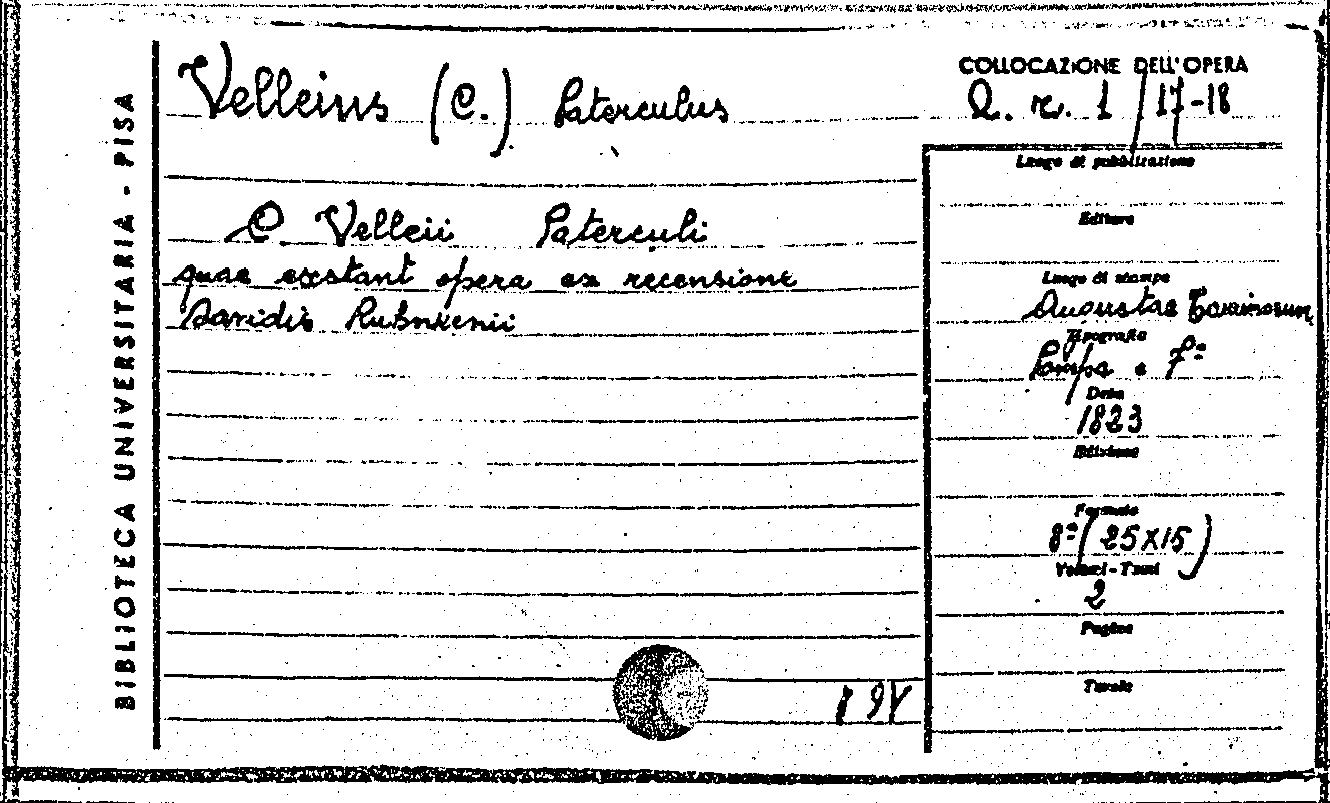 BIBLIOTECA UNIVERSITARIA - PISA
Velleius (C.) Paterculus
C. Velleii Paterculi
quae exstant opera ex recensione
Davidis Ruhnkenii
COLLOCAZIONE DELL'OPERA
Q. r. 1 / 17-18
Luogo di pubblicazione
Editore
Luogo di stampa
Augustae Taurinorum
Tipografia
Pompa e F.º
Data
1823
Edizione
Formato
8º (25x15)
Volumi - Tomi
2
Pagine
Tavole